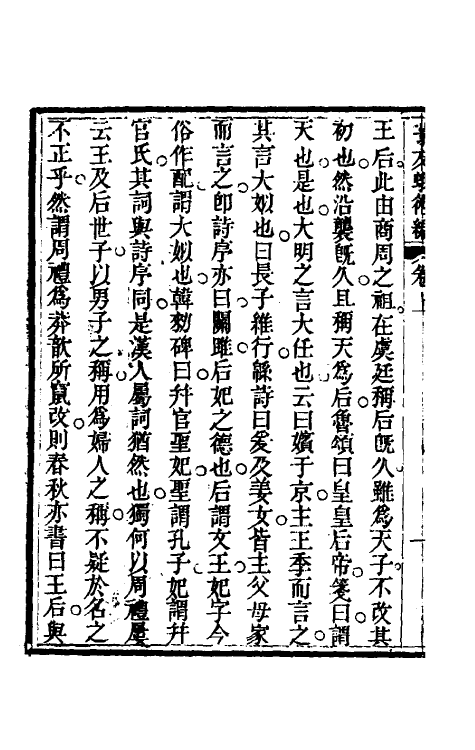 王后此由商周之祖在虞廷稱后旣久雖爲天子不改其
初也然沿襲旣久且稱天爲后魯頌曰皇皇后帝箋曰謂
天也是也大明之言大任也云曰嬪于京主王季而言之
其言大姒也曰長子維行緜詩曰爰及姜女皆主父母家
而言之卽詩序亦曰關雎后妃之德也后謂文王妃字今
俗作配謂大姒也韓勑碑曰幷官聖妃聖謂孔子妃謂幷
官氏其詞與詩序同是漢人屬詞猶然也獨何以周禮屢
云王及后世子以男子之稱用爲婦人之稱不疑於名之
不正乎然謂周禮爲莽歆所竄改則春秋亦書曰王后與